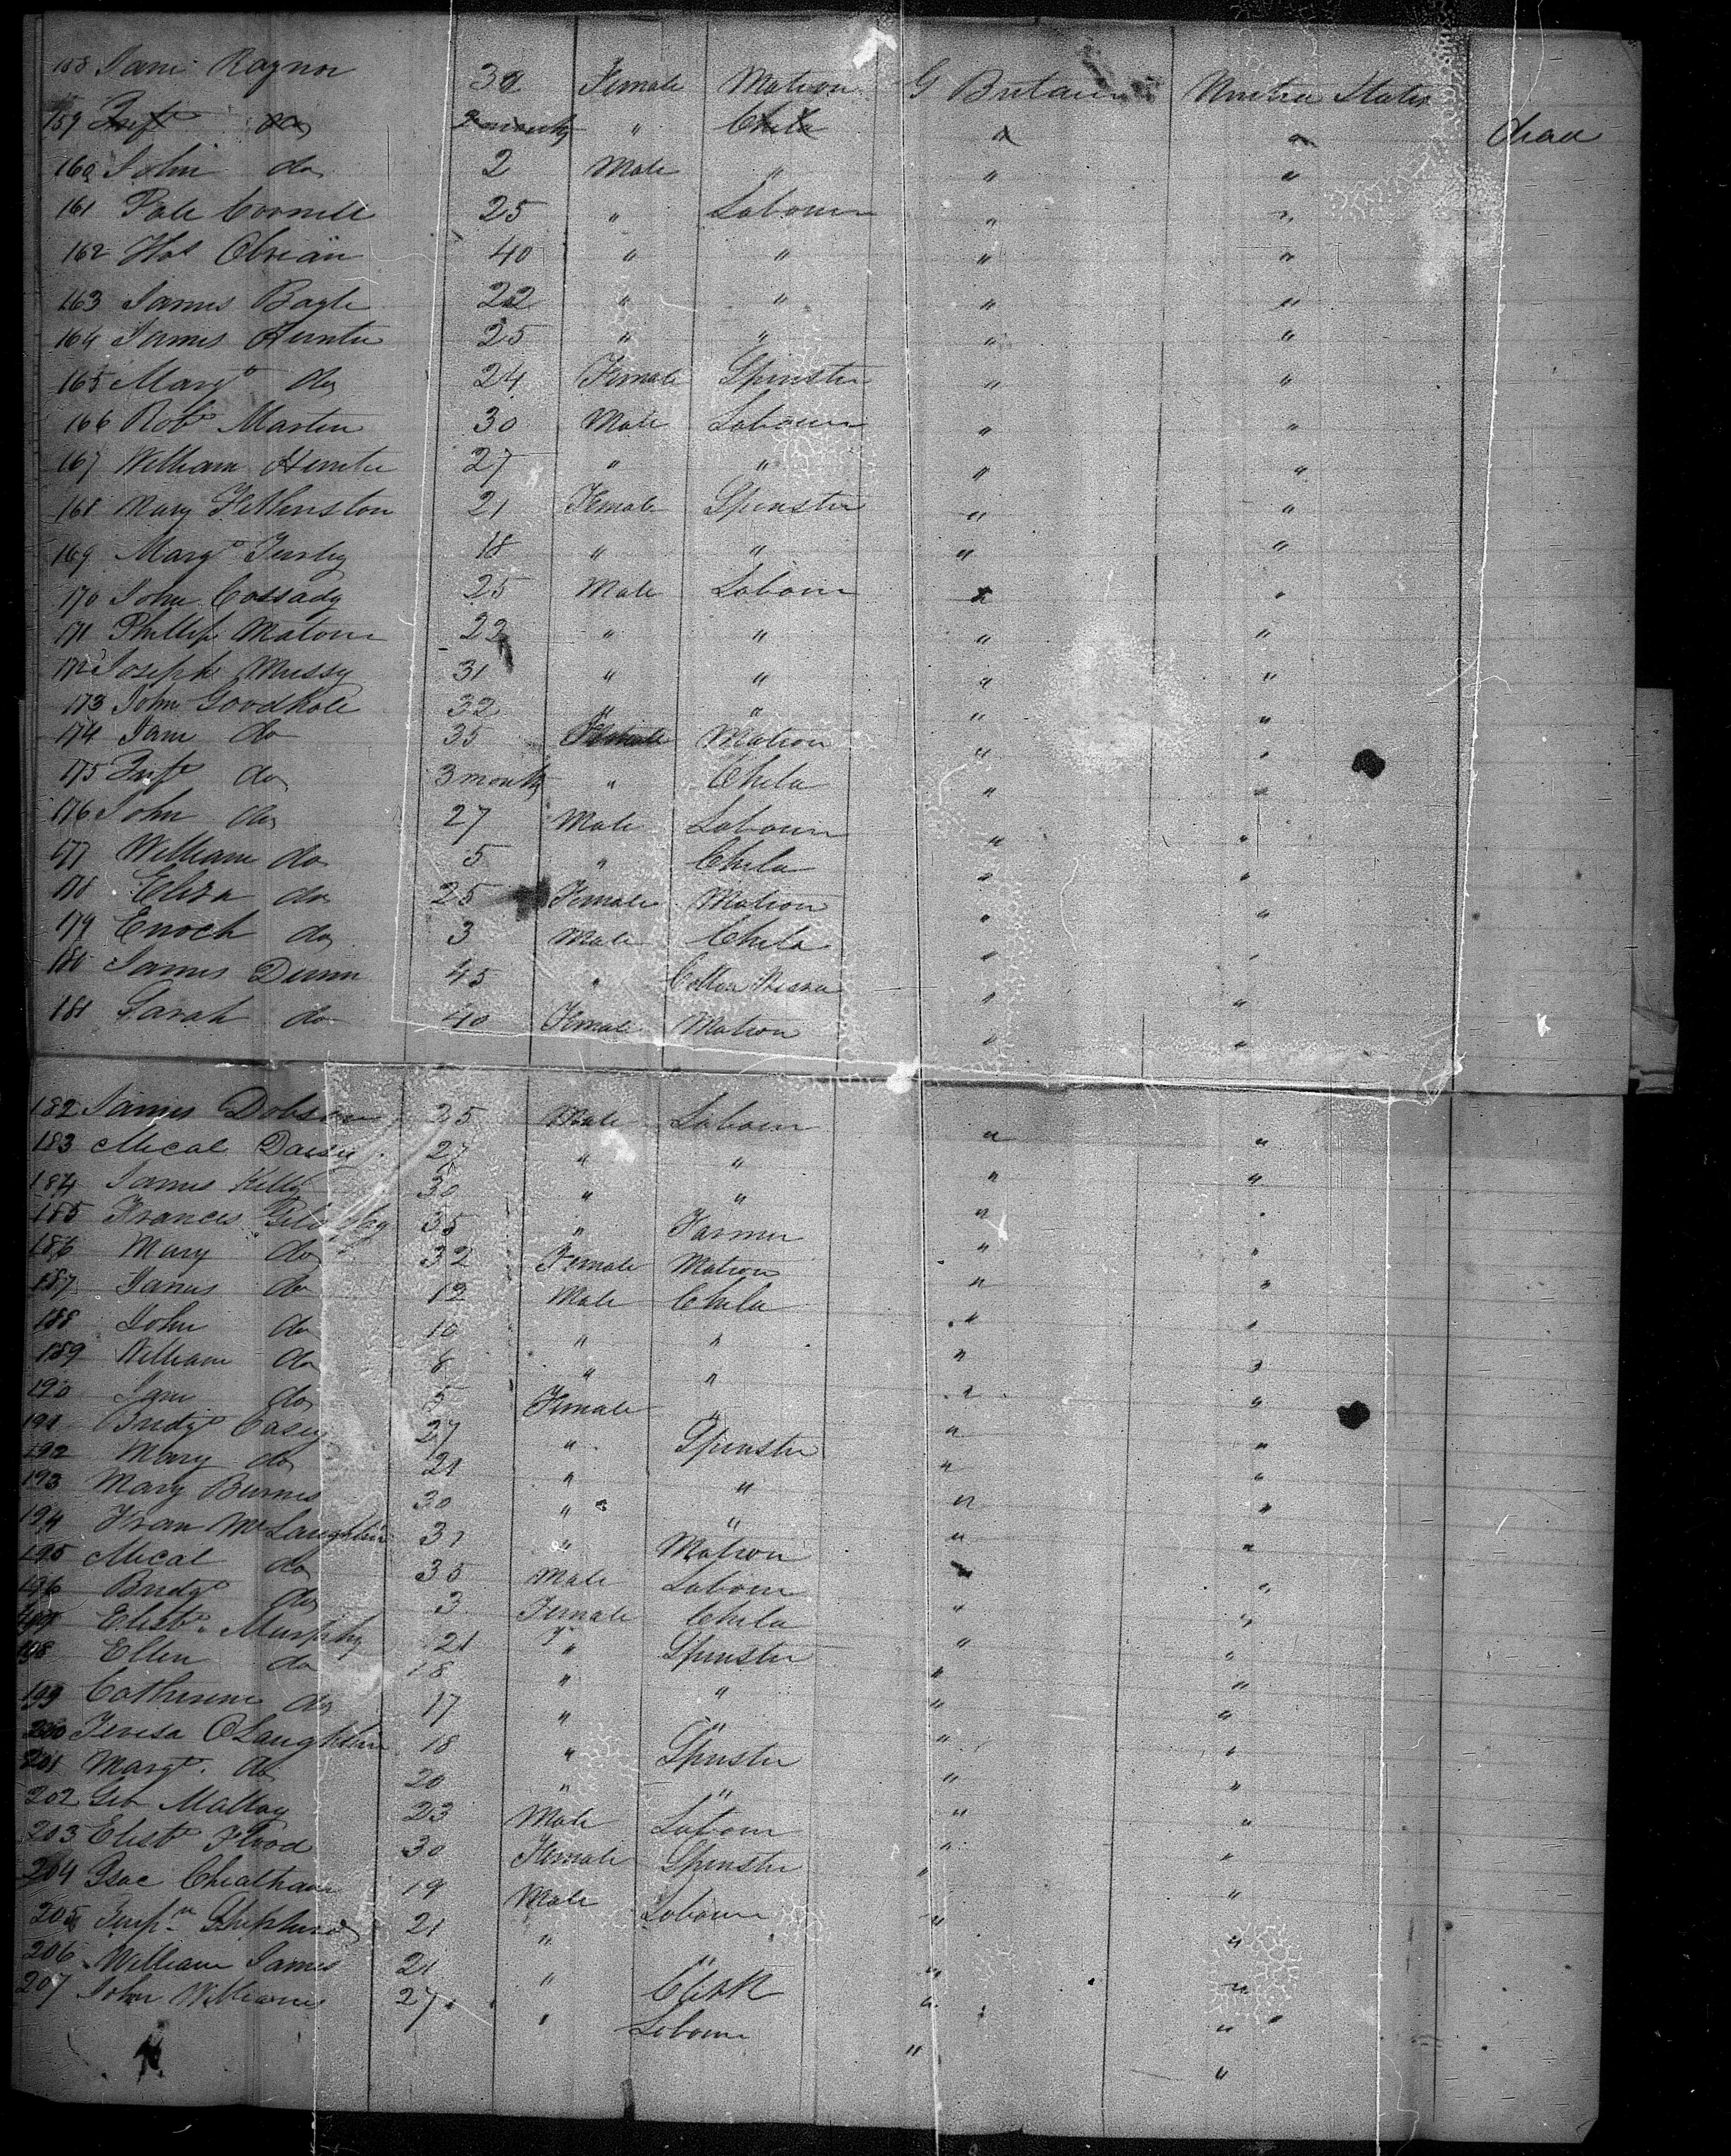 158 Jane Raynor 30 Female Matron G Britain United States
159 Inft do 2 months " Child " " dead
160 John do 2 Male " " "
161 Pate Cornell 25 " Labourer " "
162 Obrian 40 " " " "
163 James Bagle 22 " " " "
164 James Hunter 25 " " " "
165 Margt do 24 Female Spinster " "
166 Robt Martin 30 Male Labourer " "
167 William Hunter 27 " " " "
168 Mary Fethenston 21 Female Spinster " "
169 Margt 18 " " " "
170 John Cassady 25 Male Labourer " "
171 Phillip Matone 22 " " " "
172 Joseph Mussy 31 " " " "
173 John Goodhale 32 " " " "
174 Jane do 35 Female Matron " "
175 Inft do 3 months " Child " "
176 John do 27 Male Labourer " "
177 William do 5 " Child " "
178 Eliza do 25 Female Matron " "
179 Enoch do 3 Male Child " "
180 James Dunn 45 " Cotton " "
181 Sarah do 40 Female Matron " "
182 James Dobson 25 Male Labourer " "
183 Mical 27 " " " "
184 James Kelly 30 " " " "
185 Frances 35 " Farmer " "
186 Mary do 32 Female Matron " "
187 James do 12 Male Child " "
188 John do 10 " " " "
189 William do 8 " " " "
190 Jane do 5 Female " " "
191 Bridgt Casey 27 " Spinster " "
192 Mary do 21 " " " "
193 Mary Burnes 30 " " " "
194 Fran McLaughlin 31 " Matron " "
195 Mical do 35 Male Labourer " "
196 Bridgt do 3 Female Child " "
197 Elisbt Murphy 21 " Spinster " "
198 Ellen do 18 " " " "
199 Catherine do 17 " " " "
200 Teresa OLaughlin 18 " Spinster " "
201 Margt do 20 " " " "
202 Geo Malloy 23 Male Labourer " "
203 Elisbt Flood 30 Female Spinster " "
204 Isac Cheatham 19 Male Labourer " "
205 Shepherd 21 " " " "
206 William James 21 " Clerk " "
207 John Williams 27 " Labourer " "